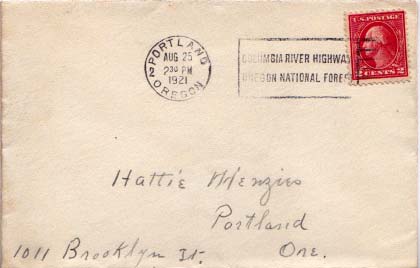 PORTLAND
AUG 25
230 PM
1921
2 OREGON
COLUMBIA RIVER HIGHWAY
OREGON NATIONAL FOREST
U.S. POSTAGE
2 CENTS 2
Hattie Menzies
Portland
1011 Brooklyn St. Ore.